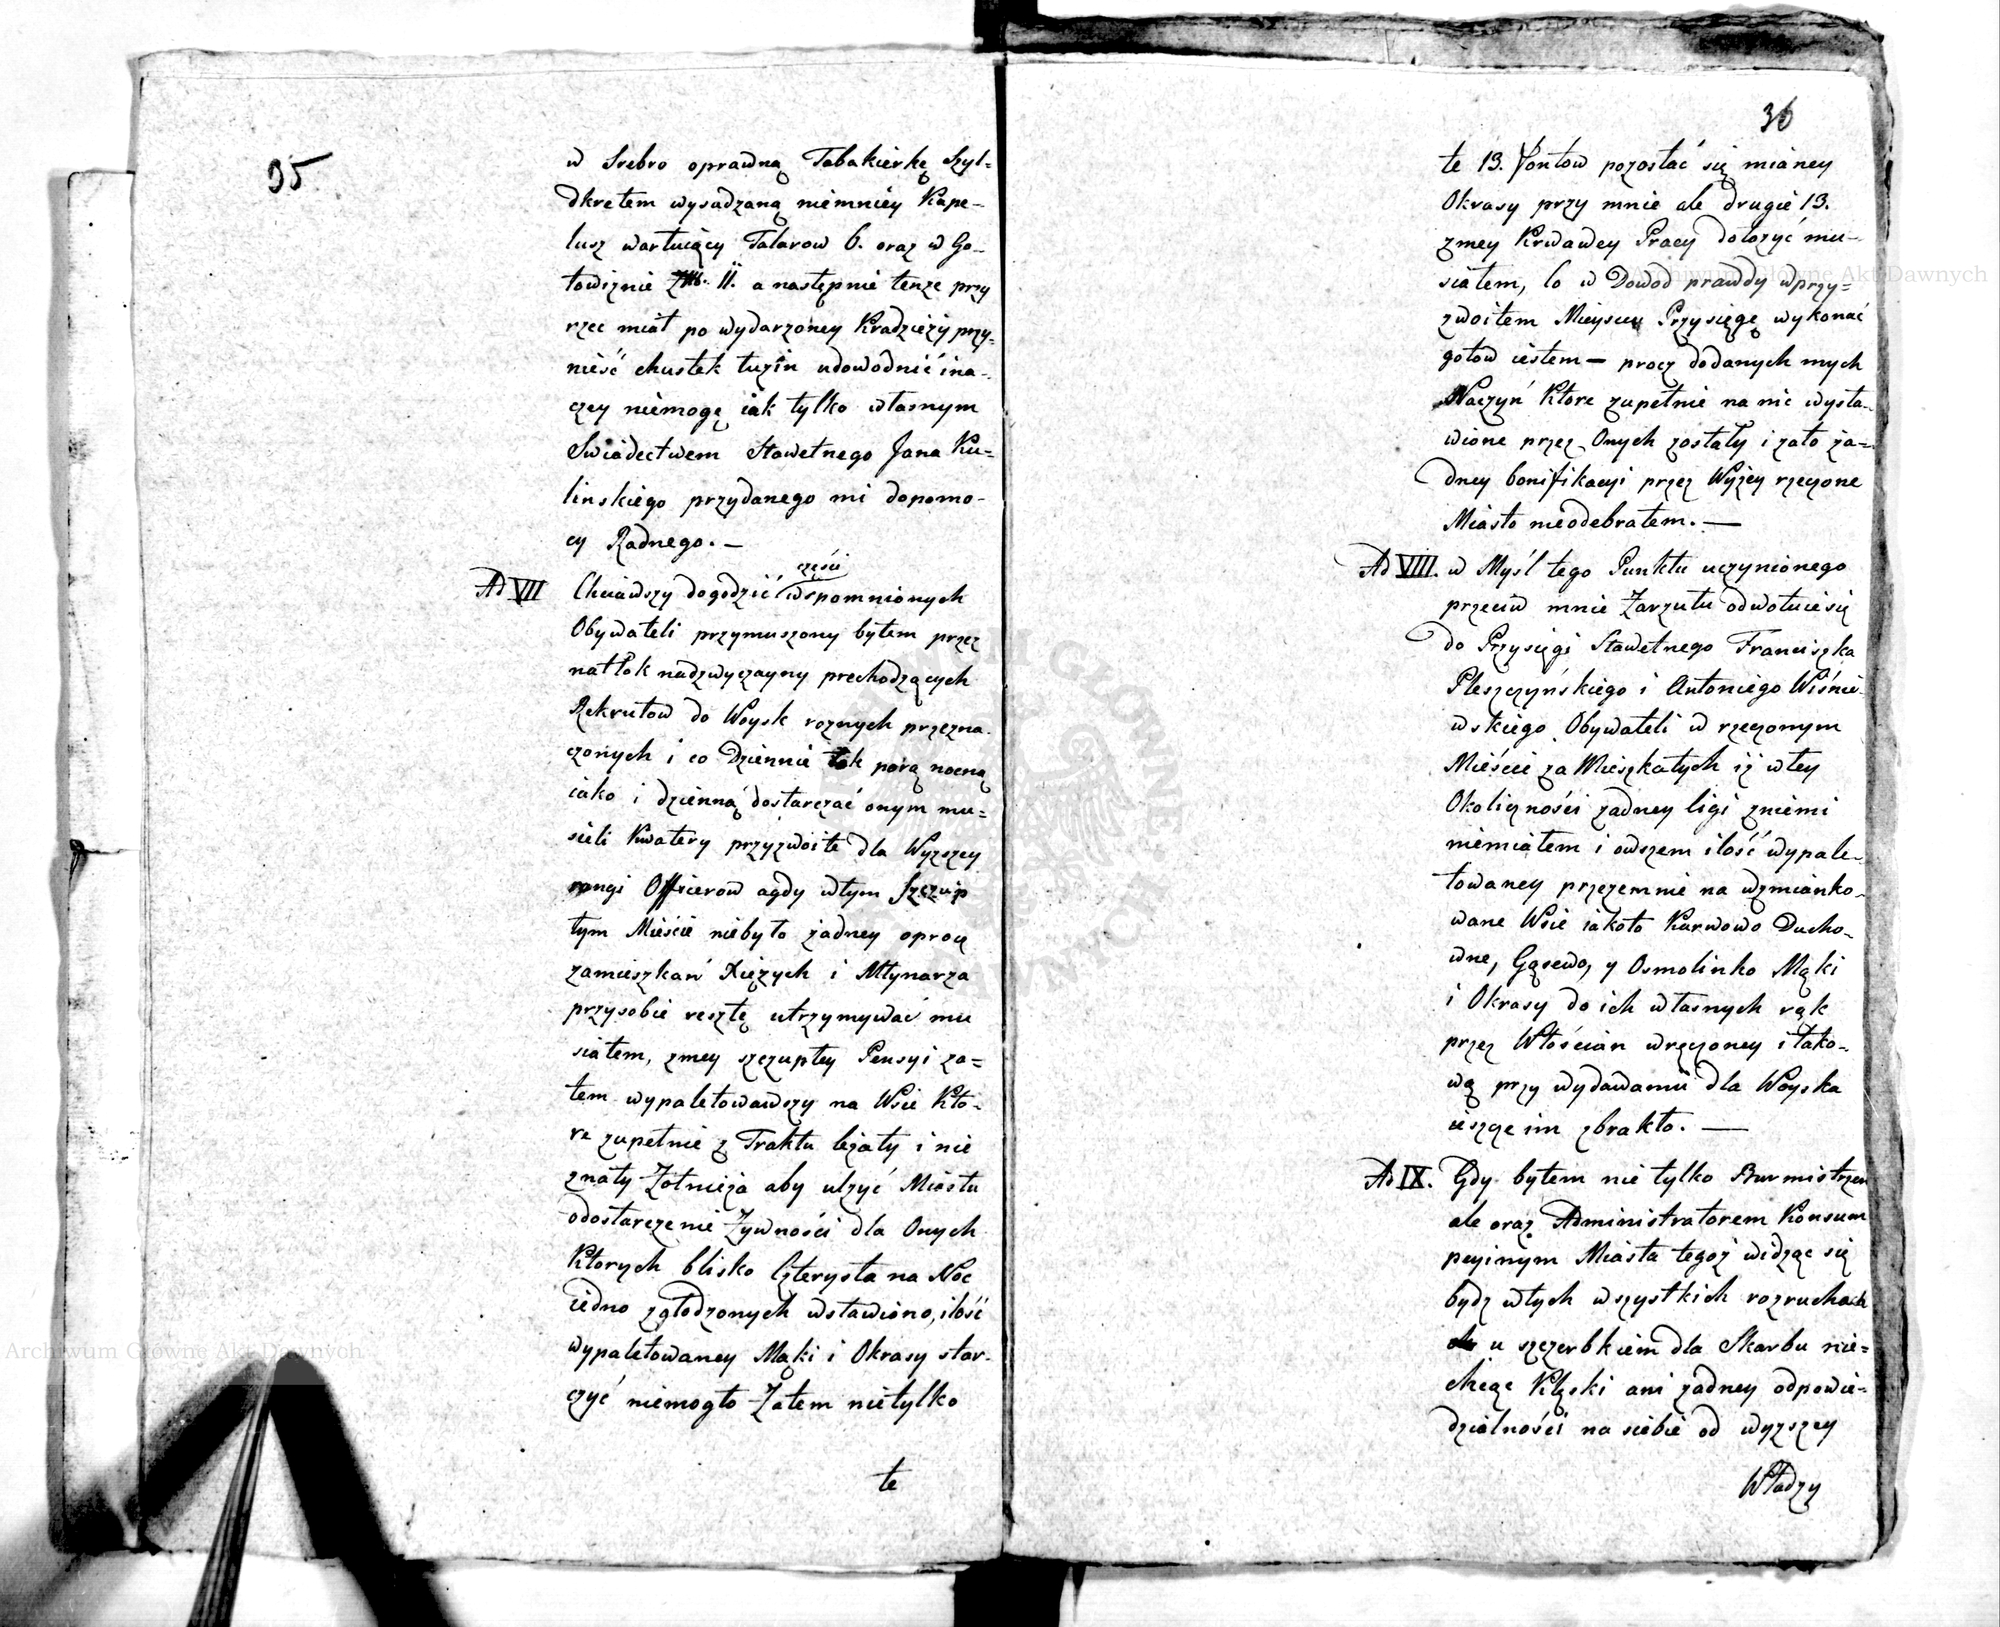 35
w Srebro oprawną Tabakierkę Szyl=
dkretem wysadzaną niemniey Kape-
lusz wartuiący Talarow 6. oraz w Go-
towiznie II. a następnie tenze przy
rzec miał po wydarzoney Kradzieży przy-
nieść chustek tuzin udowodnić ina-
czey niemogę iak tylko własnym
Swiadectwem Sławetnego Jana Ku=
linskiego przydanego mi dopomo-
cy Radnego. —
części
Ad VII Chciawszy dogodzić wspomnionych
Obywateli przymuszony byłem przez
natłok nadzwyczayny prechodzących
Rekrutow do Woysk roznych przezna-
czonych i co Dziennie tak porą nocną
iako i dzienną dostarczać onym mu=
sieli Kwatery przyzwoite dla Wyzszey
rangi Officierow agdy wtym Szczup
łym Mieście niebyło żadney oprocz
zamieszkań Xięzych i Młynarza
przysobie resztę utrzymywać mu
siałem, zmey szczupłey Pensyi za=
tem wypaletowawszy na Wsie Kto-
re zupełnie z Traktu leżały i nie
znały Zołnieża aby ulzyć Miastu
odostarczenie Zywności dla Onych
Ktorych blisko Czterysta na Noc
iedno zgłodzonych wstawiono, ilość
wypaletowaney Mąki i Okrasy star-
czyć niemogło Zatem nietylko
te
36
te 13. Fontow pozostać się mianey
Okrasy przy mnie ale drugie 13.
zmey Krwawey Pracy dołozyć mu-
siałem, Co w Dowod prawdy wprzy=
zwoitem Mieyscu Przysięgę wykonać
gotow iestem — procz dodanych mych
Naczyń Ktore zupełnie na nic wysta-
wione przez Onych zostały i zato ża=
dney bonifikacyi przez Wyżey rzeczone
Miasto nieodebrałem. —
Ad VIII. w Myśl tego Punktu uczynionego
przeciw mnie Zarzutu odwołuie się
do Przysięgi Sławetnego Franciszka
Pleszczyńskiego i Antoniego Wiśnie-
wskiego Obywateli w rzeczonym
Mieście za Mieszkałych iż wtey
Okoliczności żadney ligi zniemi
niemiałem i owszem ilość wypale-
towaney przezemnie na wzmianko-
wane Wsie iakoto Karwowo Ducho-
wne, Gąsewo, y Osmolinko Mąki
i Okrasy do ich własnych rąk
przez Włościan wręczoney i tako-
wą przy wydawaniu dla Woyska
ieszcze im zbrakło. —
Ad IX. Gdy byłem nie tylko Burmistrzem
ale oraz Administratorem Konsum
pcyinym Miasta tegoż widząc się
bydz wtych wszystkich rozruchach
u szczerbkiem dla Skarbu nie=
chcąc Klęski ani żadney odpowie-
dzialności na siebie od wyzszey
Władzy
Archiwum Główne Akt Dawnych
Archiwum Główne Akt Dawnych